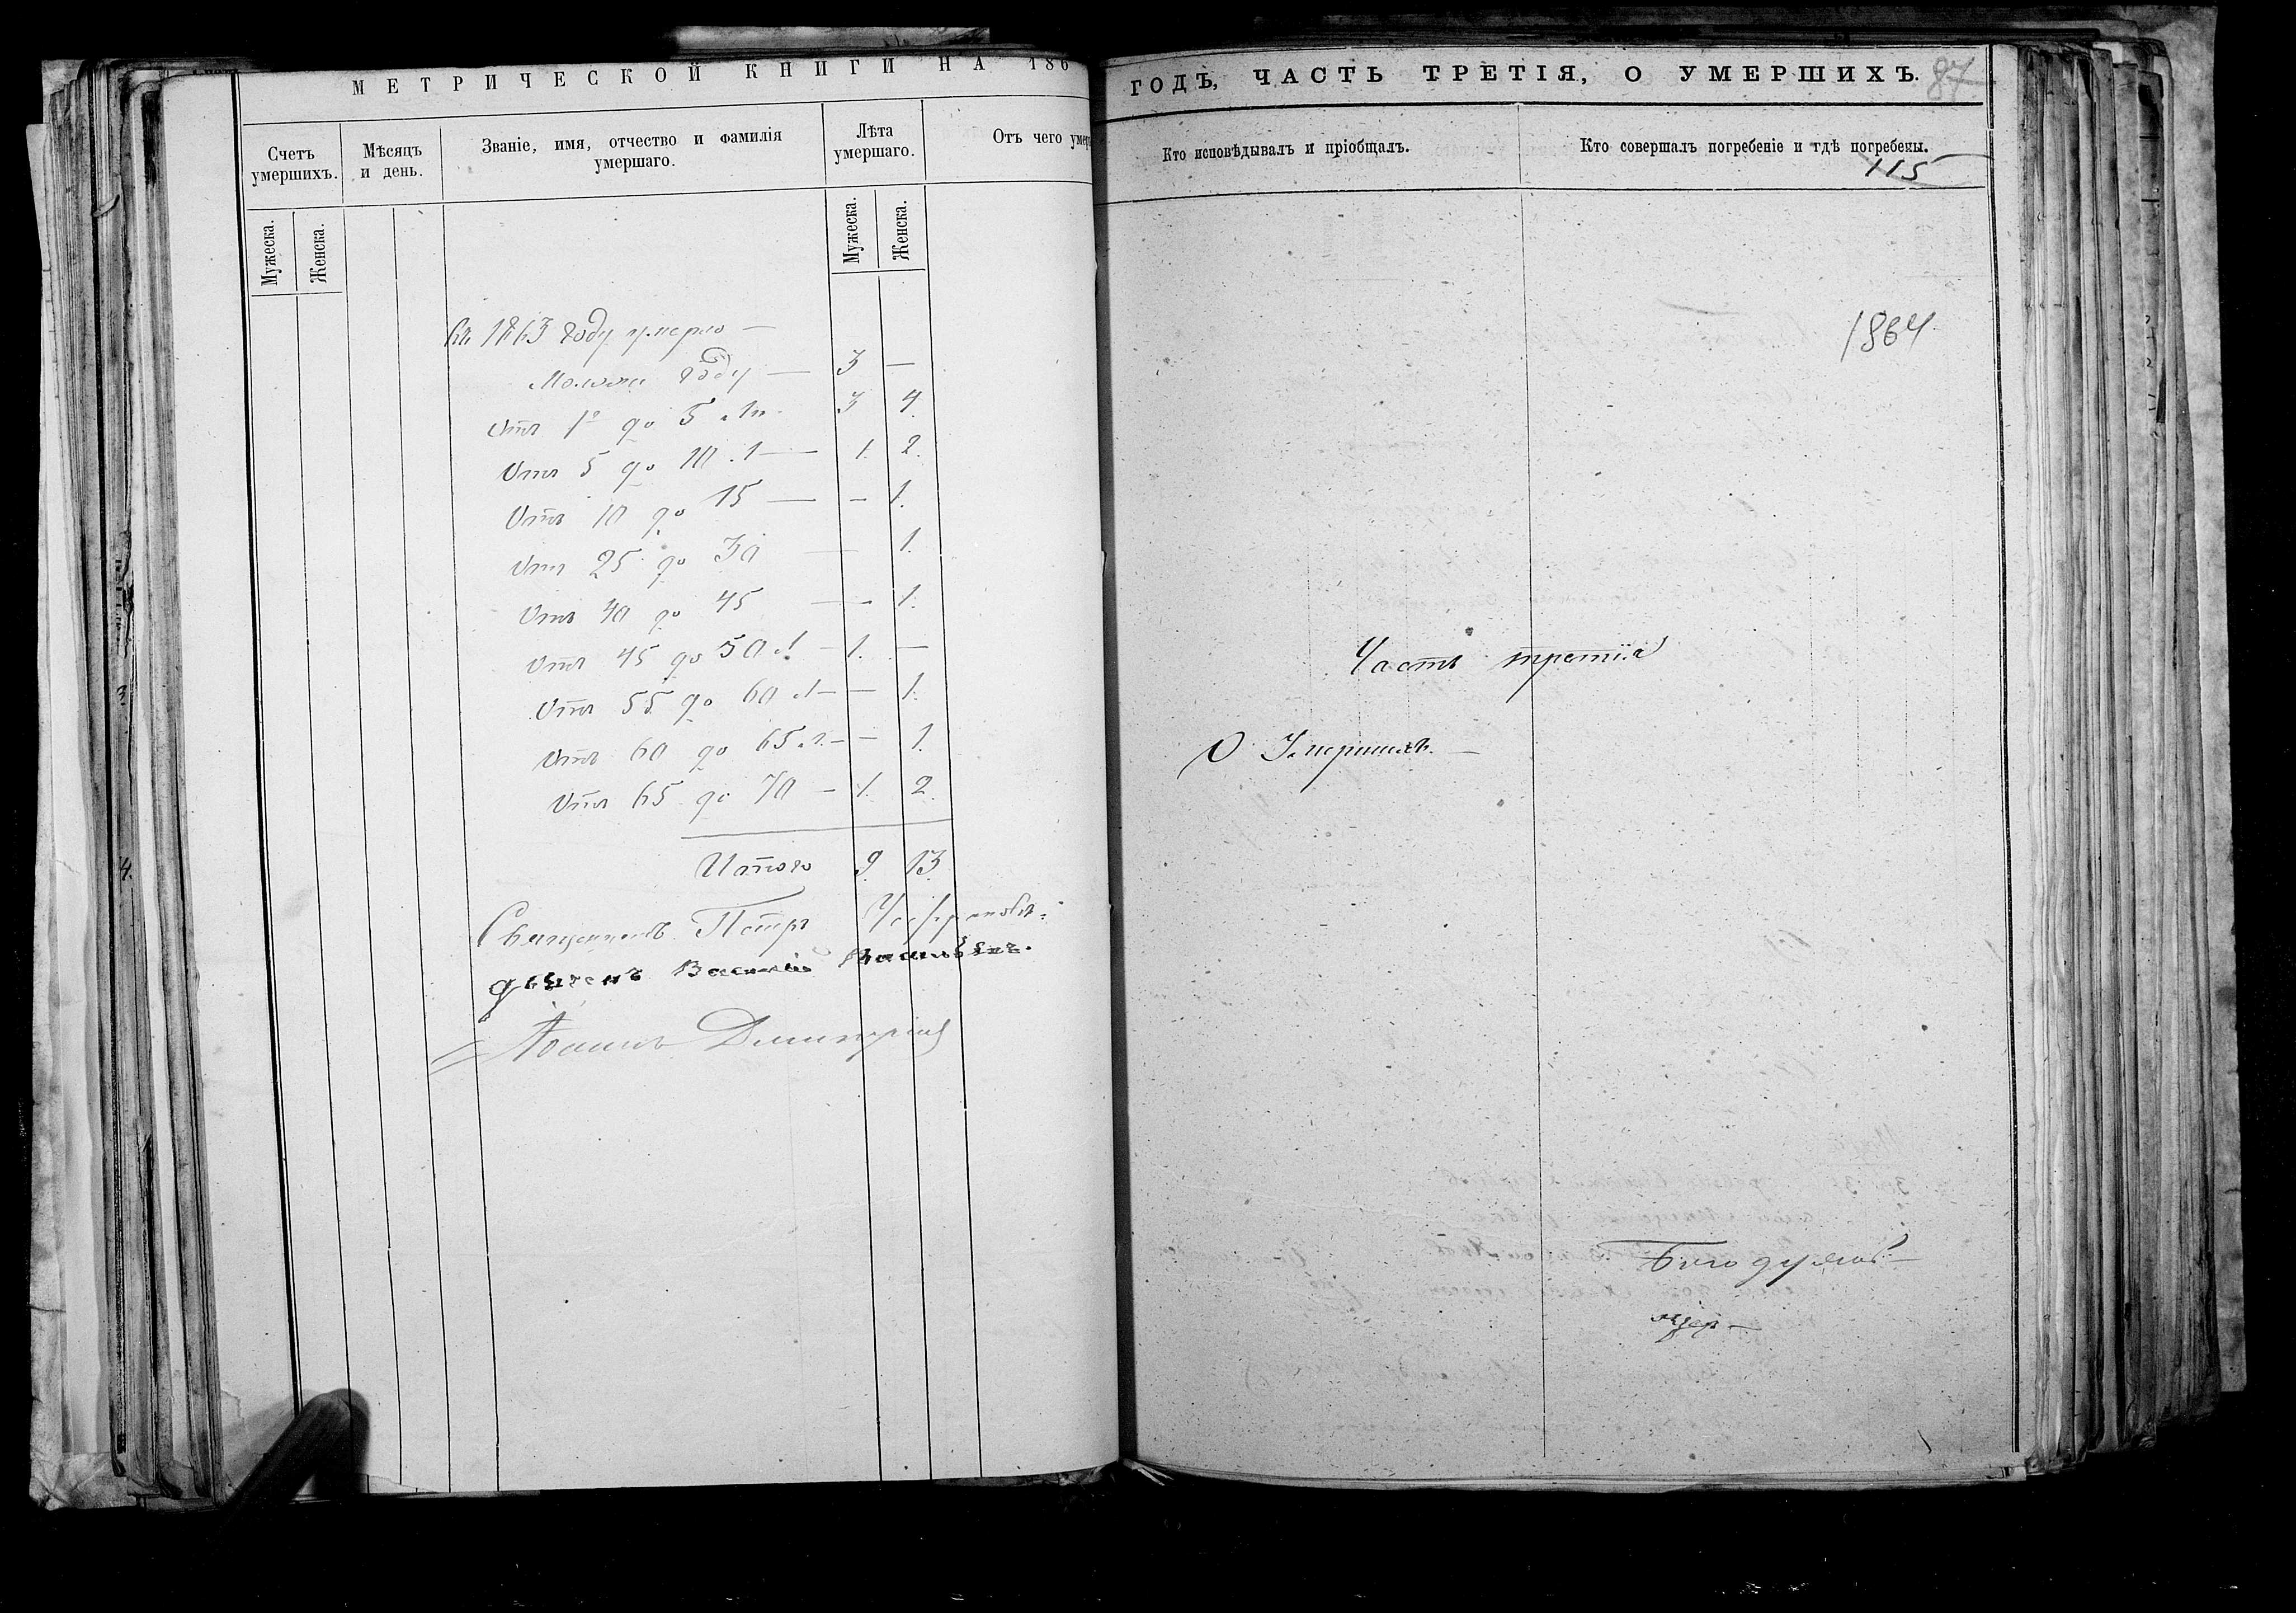 МЕТРИЧЕСКОЙ КНИГИ НА 186
Счетъ умершихъ.
Мѣсяцъ и день.
Званіе, имя, отчество и фамилія умершаго.
Лѣта умершаго.
Отъ чего умер
Мужеска.
Женска.
Мужеска.
Женска.
въ 1863 году умерло —
Моложе году — 3 —
Отъ 1º до 5 л. 3 4.
Отъ 5 до 10 л — 1. 2.
Отъ 10 до 15 — — 1.
Отъ 25 до 30 — 1.
Отъ 40 до 45 — - 1.
Отъ 45 до 50 л. — 1. —
Отъ 55 до 60 л — — 1.
Отъ 60 до 65 л. — — 1.
Отъ 65 до 70 — 1. 2.
Итого 9. 13.
Священникъ Петръ
дьячекъ Василій
Іоаннъ Димитріев
ГОДЪ, ЧАСТЬ ТРЕТІЯ, О УМЕРШИХЪ. 87
Кто исповѣдывалъ и пріобщалъ.
Кто совершалъ погребеніе и гдѣ погребены.
115
1864
Часть третія
О Умершихъ. —